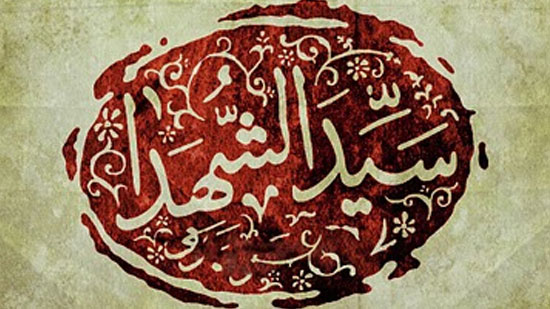 سَیِّدَ الشُّهَدا